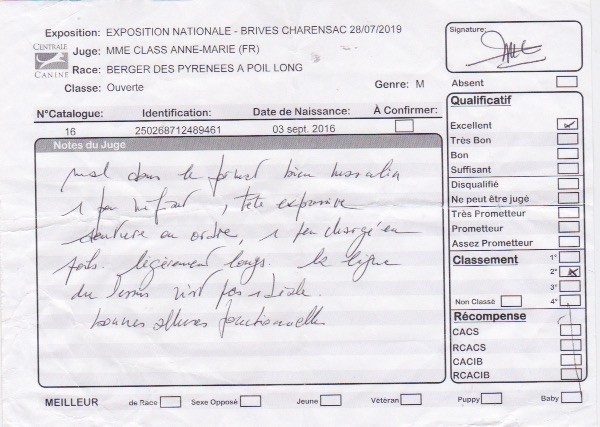 Exposition: EXPOSITION NATIONALE - BRIVES CHARENSAC 28/07/2019
Juge: MME CLASS ANNE-MARIE (FR)
Race: BERGER DES PYRENEES A POIL LONG
Classe: Ouverte Genre: M
CENTRALE CANINE
Signature:
Absent
N°Catalogue: Identification: Date de Naissance: À Confirmer:
16 250268712489461 03 sept. 2016
Notes du Juge
dans le format bien masculin
1 peu, tête expressive
denture en ordre, 1 peu chargé en
poils. légèrement long. la ligne
du dessus n'est pas idéale.
bonnes allures fonctionnelles
Qualificatif
Excellent
Très Bon
Bon
Suffisant
Disqualifié
Ne peut être jugé
Très Prometteur
Prometteur
Assez Prometteur
Classement 1°
2°
3°
Non Classé 4°
Récompense
CACS
RCACS
CACIB
RCACIB
MEILLEUR de Race Sexe Opposé Jeune Vétéran Puppy Baby